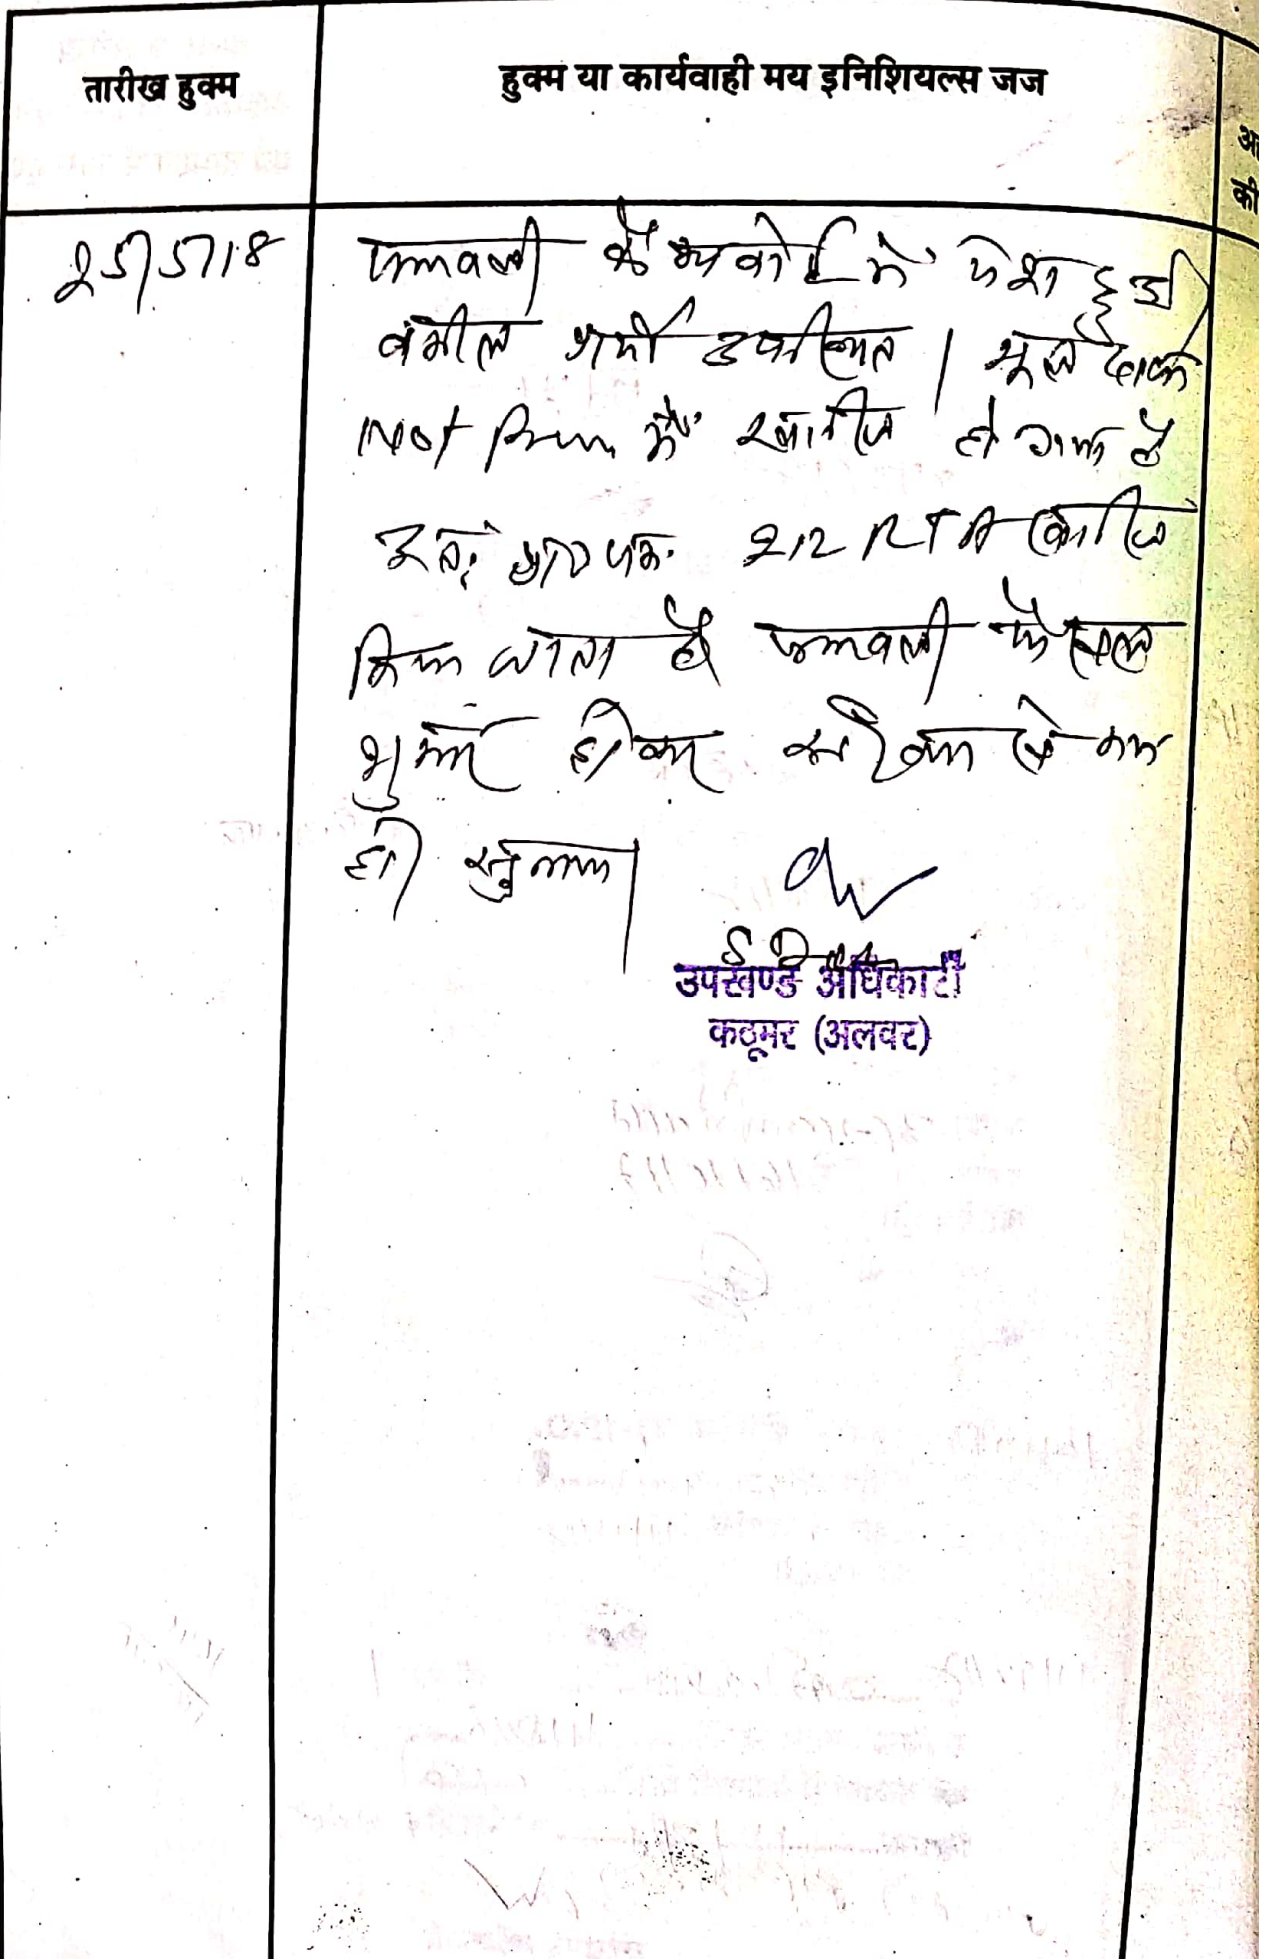 तारीख हुक्म
हुक्म या कार्यवाही मय इनिशियल्स जज
अ
की
25/5/18
पत्रावली कैम्प कोर्ट में पेश हुई
वकील प्रार्थी उपस्थित । मूल दावा
Not Press में खारीज हो गया है
अतः प्रा० पत्र 212 RTA खारिज
किया जाता है पत्रावली फैसल
शुमार होकर नम्बर से कम
हो सुनाया।
उपखण्ड अधिकारी
कठूमर (अलवर)